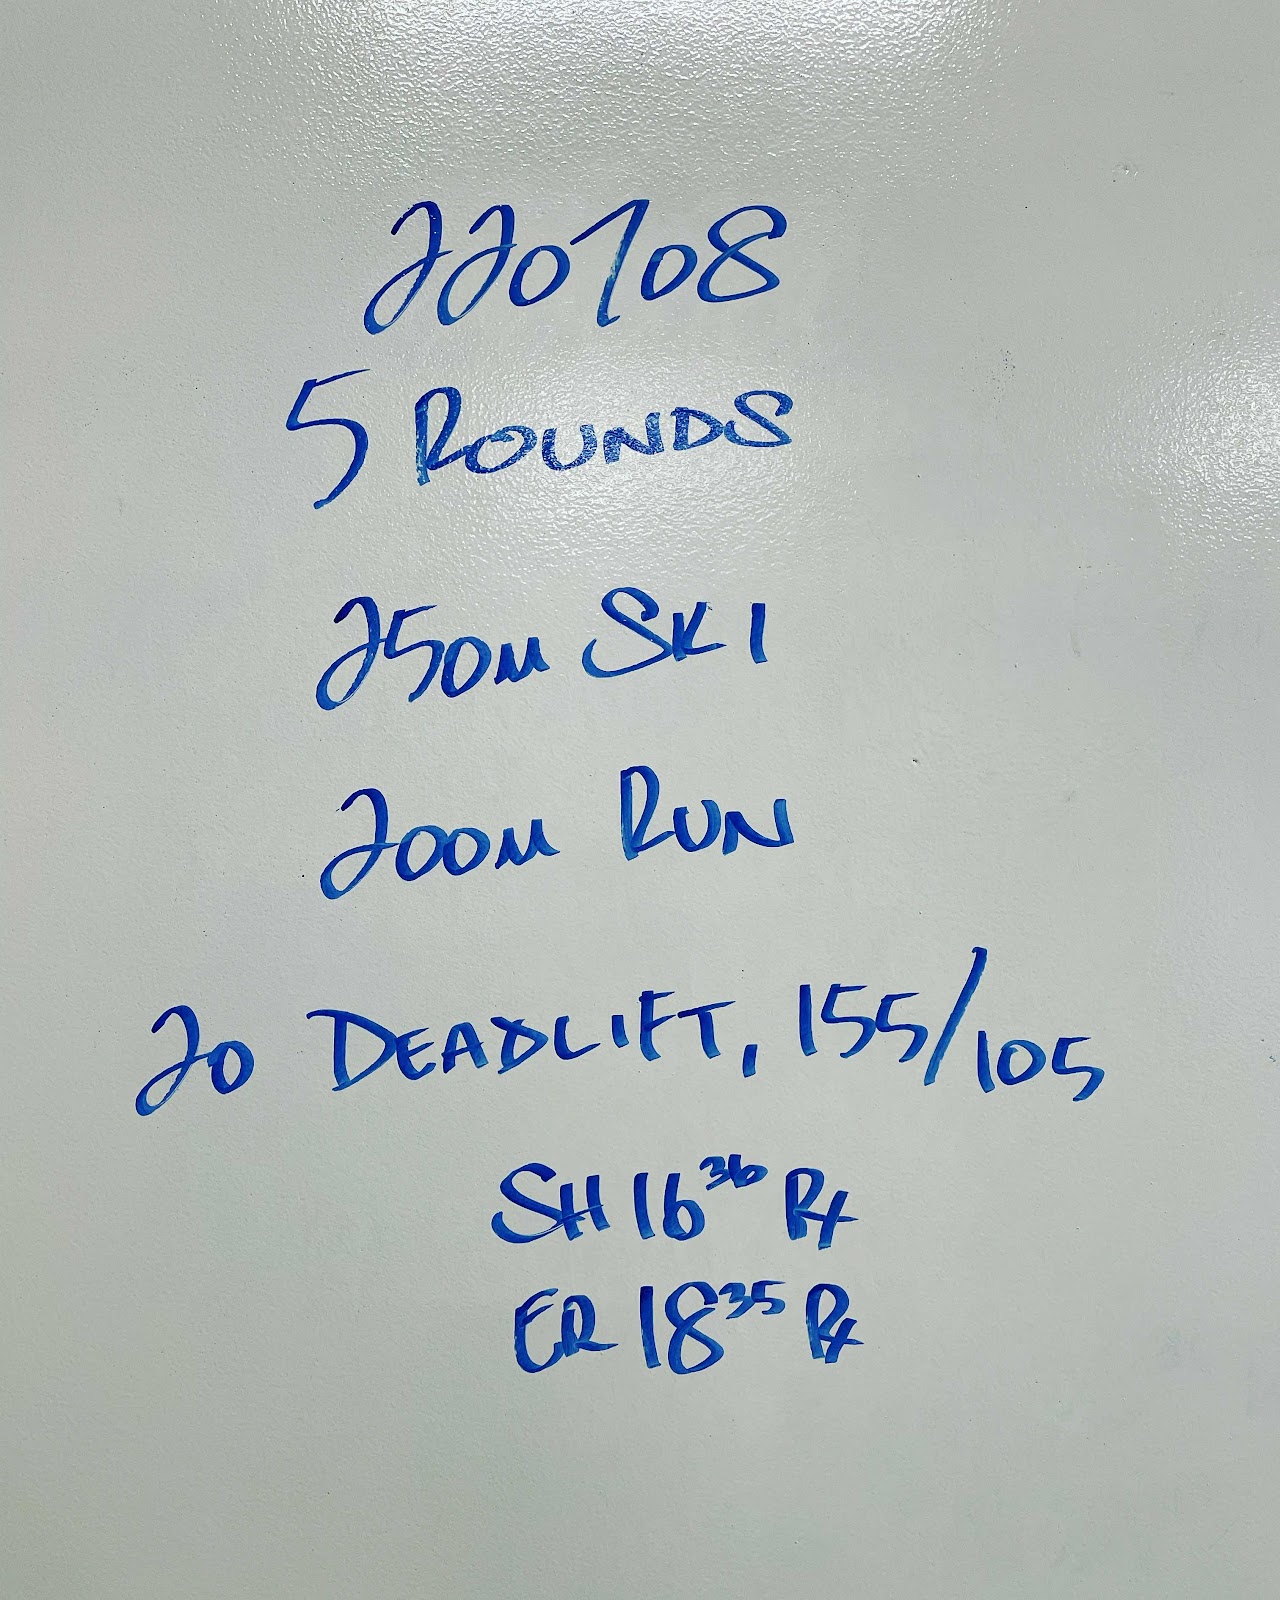 220708
5 ROUNDS
250M SKI
200M RUN
20 DEADLIFT, 155/105
SH 16³⁶ Rx
ER 18³⁵ Rx